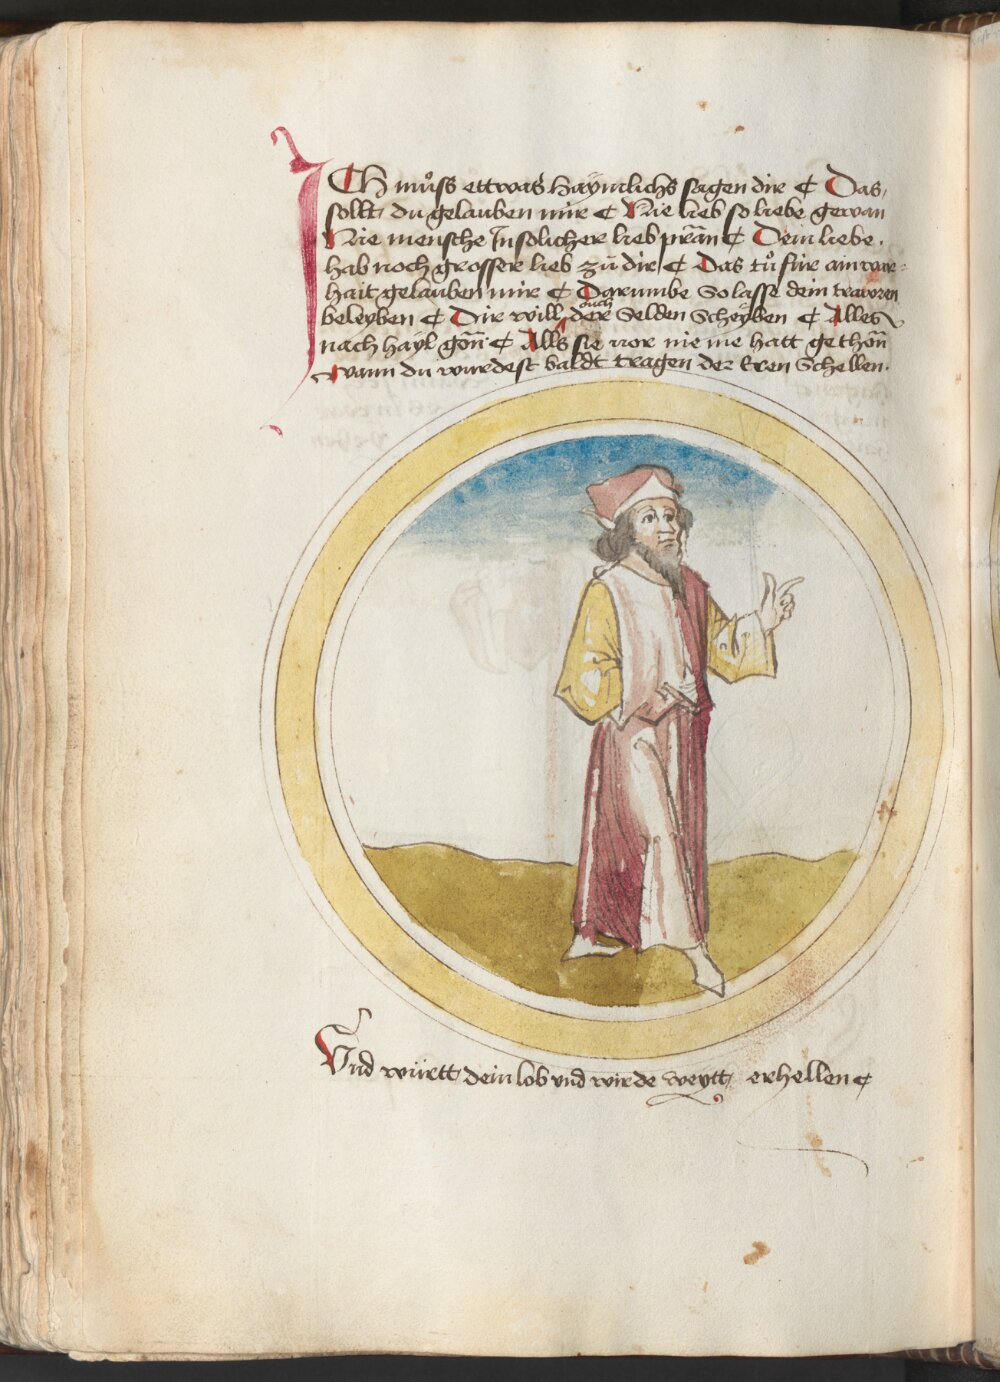 ICh můſs ettwas haÿmlichs ſagen dir ¢ Das
ſollt du gelauben mir ¢ Nie lieb ſo liebe gewan
Nie menſche Jn ſolicher lieb pran̄ ¢ Dein liebe
hab noch groſſer lieb zū dir ¢ Das tů für ain war⸗
hait gelauben mir ¢ Darumbe So laſſe dein trawren
beleyben ¢ Dir will auch der Selden Scheÿben ¢ Alles
nach haÿl gon̄ ¢ Alls ſie vor nie me hatt gethon̄
wann du wurdeſt baldt tragen der Eren Schellen.
Vnd württ dein lob vnd wirde weytt erhellen ¢